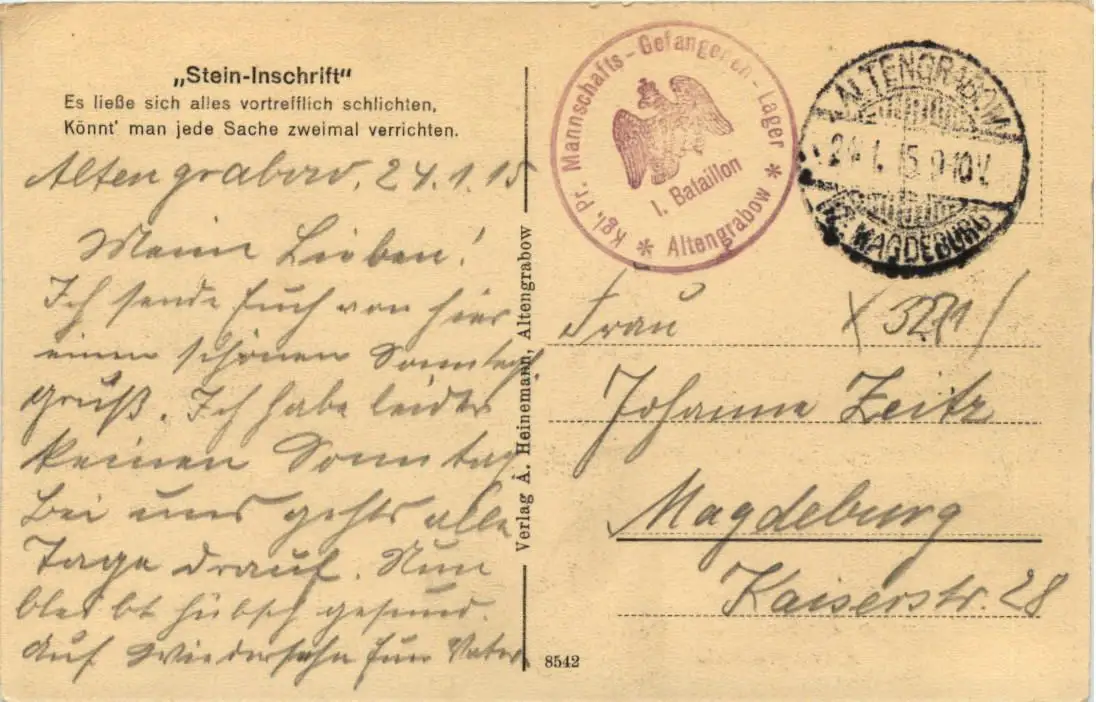 „Stein-Inschrift“
Es ließe sich alles vortrefflich schlichten,
Könnt' man jede Sache zweimal verrichten.
Altengrabow, 24.1.15
Meine Lieben!
Ich sende Euch von hier
einen schönen Sonntags
gruß. Ich habe leider
keinen Sonntag
Bei uns gehts alle
Tage drauf. Nun
bleibt hübsch gesund.
Auf Wiedersehn Eur Vater
Verlag A. Heinemann, Altengrabow
8542
Kgl. Pr. Mannschafts-Gefangenen-Lager
I. Bataillon
* Altengrabow *
ALTENGRABOW
24.1.15 9-10V.
MAGDEBURG
Frau
Johanne Zeitz
Magdeburg
Kaiserstr. 28